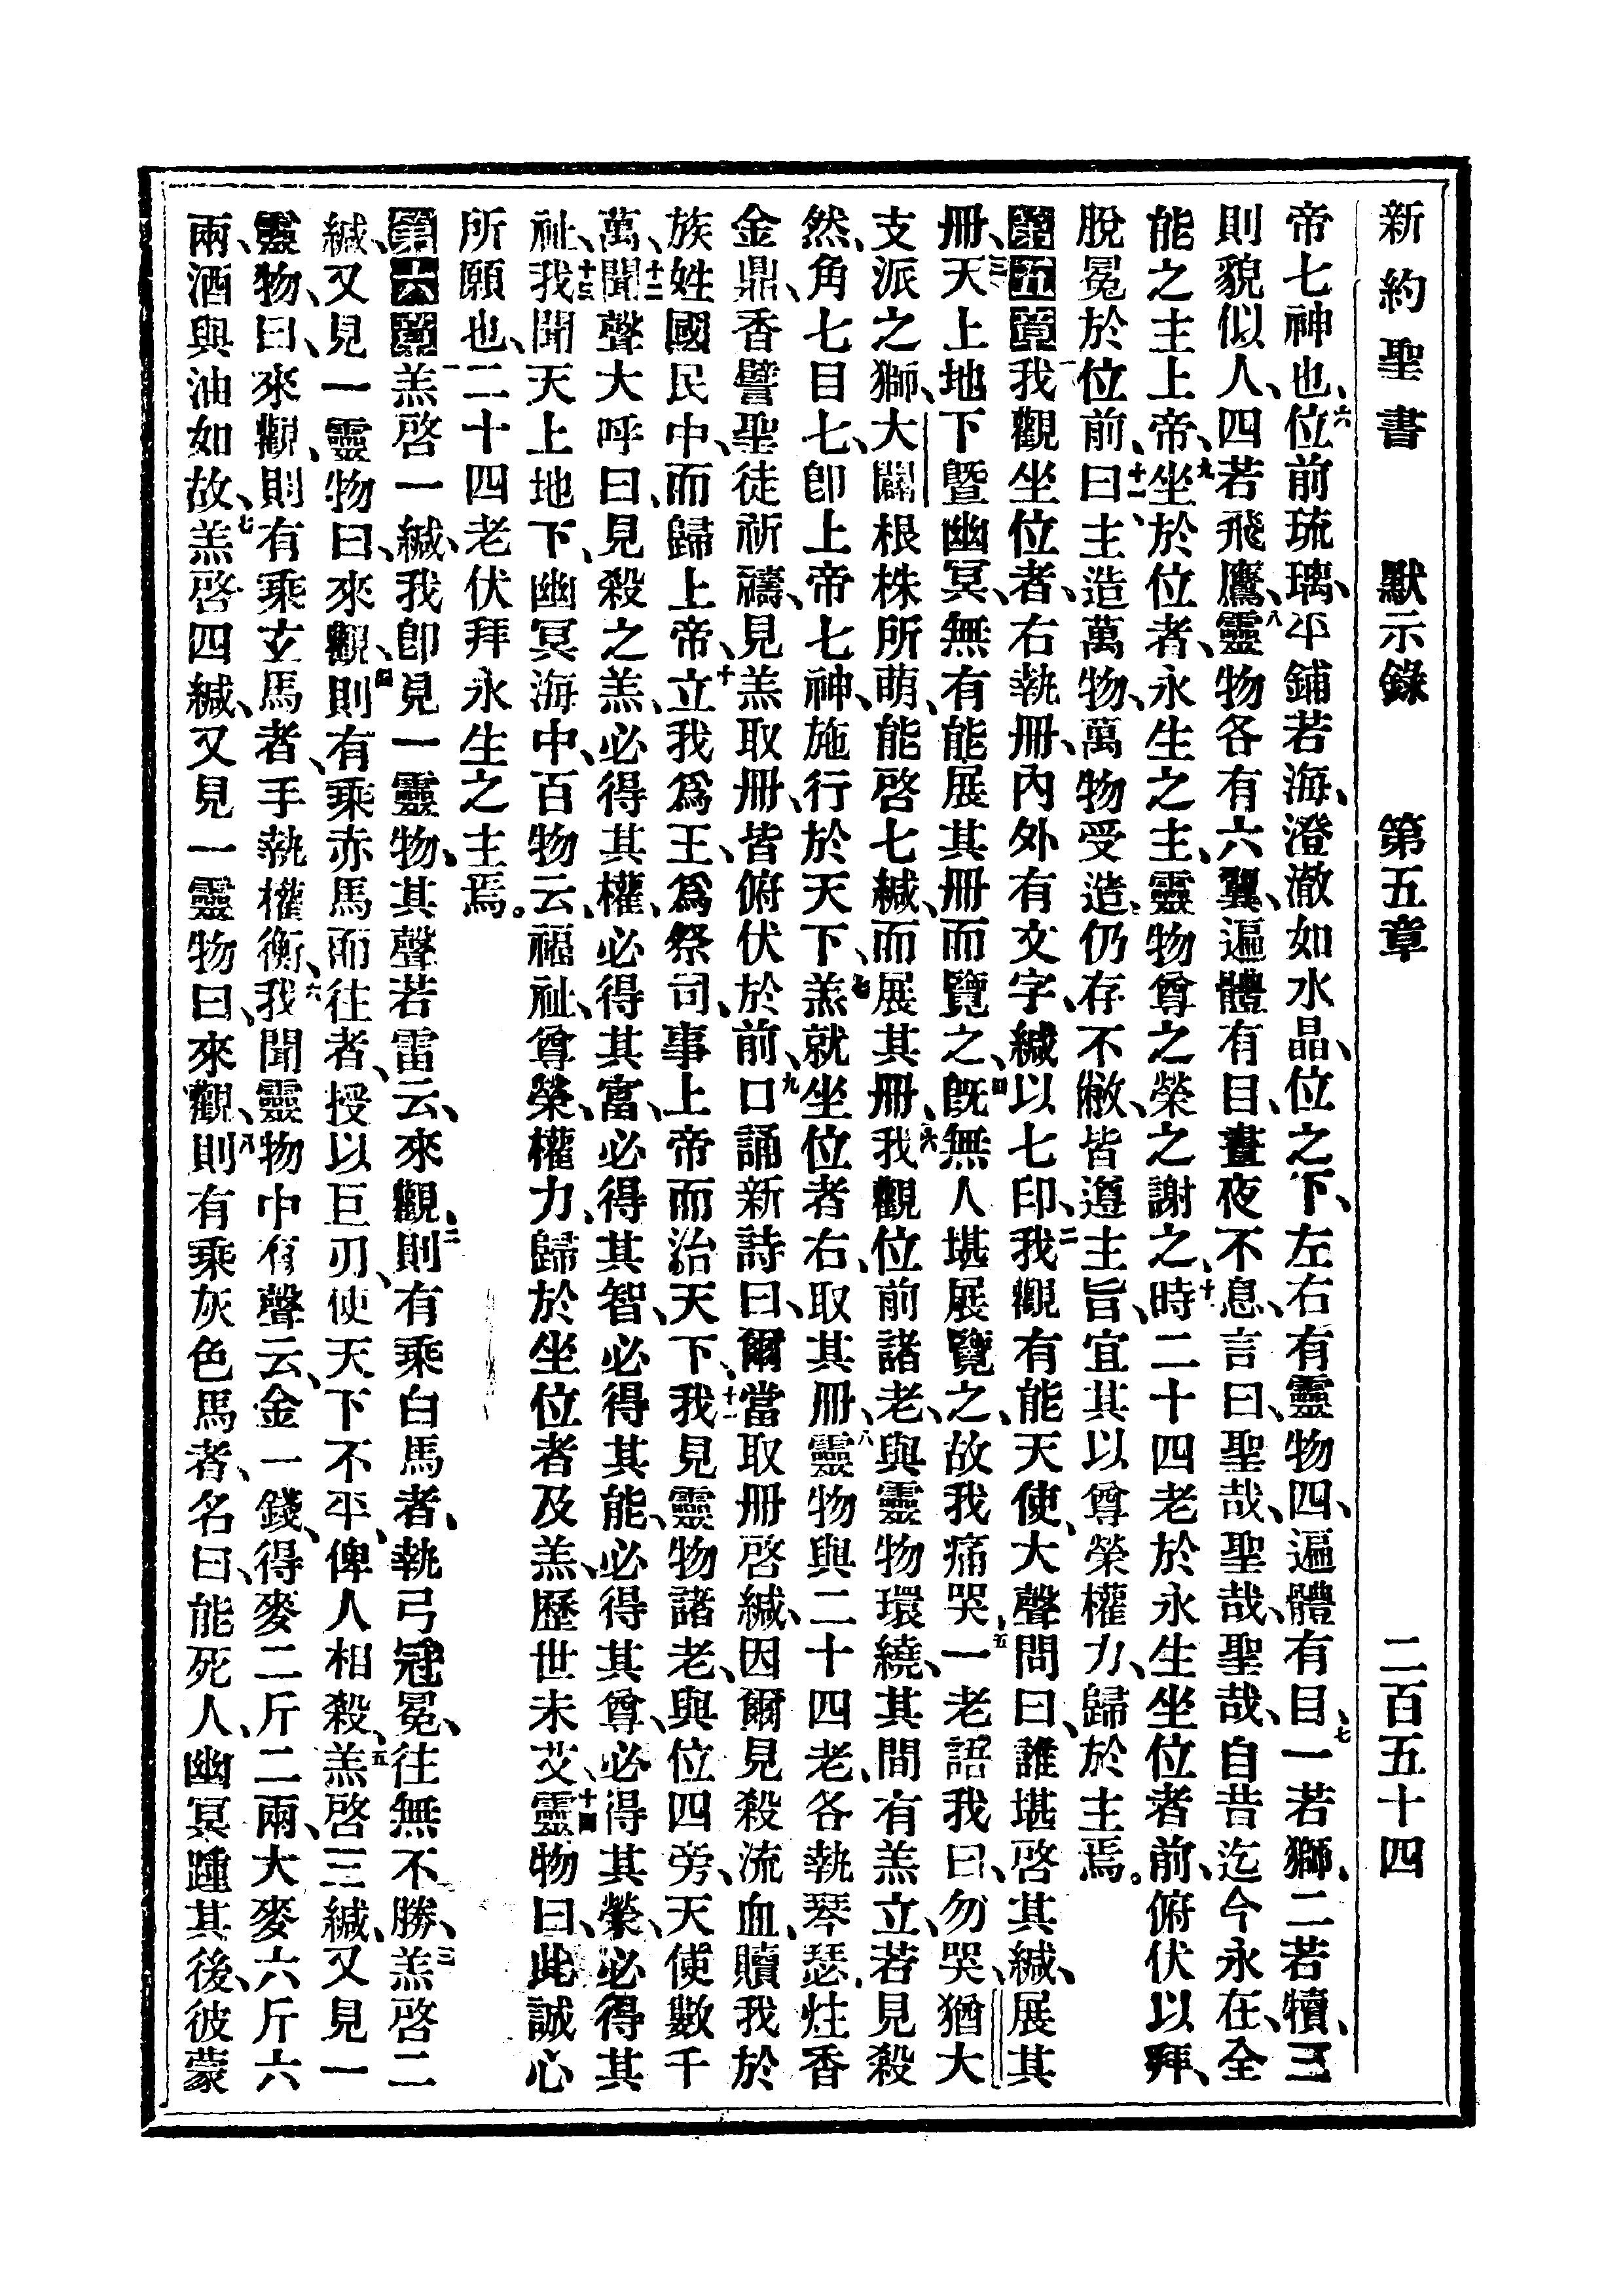 新約聖書 默示錄 第五章 二百五十四
帝七神也、六位前琉璃、平鋪若海、澄澈如水晶、位之下、左右有靈物四、遍體有目、七一若獅、二若犢、三
則貌似人、四若飛鷹、八靈物各有六翼、遍體有目、晝夜不息、言曰、聖哉、聖哉、聖哉、自昔迄今永在、全
能之主上帝、九坐於位者、永生之主、靈物尊之榮之謝之、時十二十四老於永生坐位者前、俯伏以拜、
脫冕於位前、曰、十一主造萬物、萬物受造、仍存不敝、皆遵主旨、宜其以尊榮權力、歸於主焉。
第五章一我觀坐位者、右執冊、內外有文字、緘以七印、二我觀有能天使、大聲問曰、誰堪啓其緘、展其
冊、三天上地下曁幽冥、無有能展其冊而覽之、四旣無人堪展覽之、故我痛哭、五一老語我曰、勿哭、猶大
支派之獅、大闢根株所萌、能啓七緘、而展其冊、六我觀位前諸老、與靈物環繞、其間有羔立、若見殺
然、角七目七、卽上帝七神、施行於天下、七羔就坐位者右、取其冊、八靈物與二十四老、各執琴瑟、炷香
金鼎、香譬聖徒祈禱、見羔取冊、皆俯伏於前、九口誦新詩曰、爾當取冊啓緘、因爾見殺流血、贖我於
族姓國民中、而歸上帝、十立我爲王、爲祭司、事上帝而治天下、十一我見靈物諸老、與位四旁、天使數千
萬、十二聞聲大呼曰、見殺之羔、必得其權、必得其富、必得其智、必得其能、必得其尊、必得其榮、必得其
祉、十三我聞天上地下、幽冥海中、百物云、福祉、尊榮、權力、歸於坐位者及羔、歷世未艾、十四靈物曰、此誠心
所願也、二十四老伏拜永生之主焉。
第六章一羔啓一緘、我卽見一靈物、其聲若雷云、來觀、二則有乘白馬者、執弓冠冕、往無不勝、三羔啓二
緘、又見一靈物曰、來觀、四則有乘赤馬而往者、授以巨刃、使天下不平、俾人相殺、五羔啓三緘、又見一
靈物、曰、來觀、則有乘玄馬者、手執權衡、六我聞靈物中有聲云、金一錢、得麥二斤二兩、大麥六斤六
兩、酒與油如故、七羔啓四緘、又見一靈物曰、來觀、八則有乘灰色馬者、名曰、能死人、幽冥踵其後、彼蒙